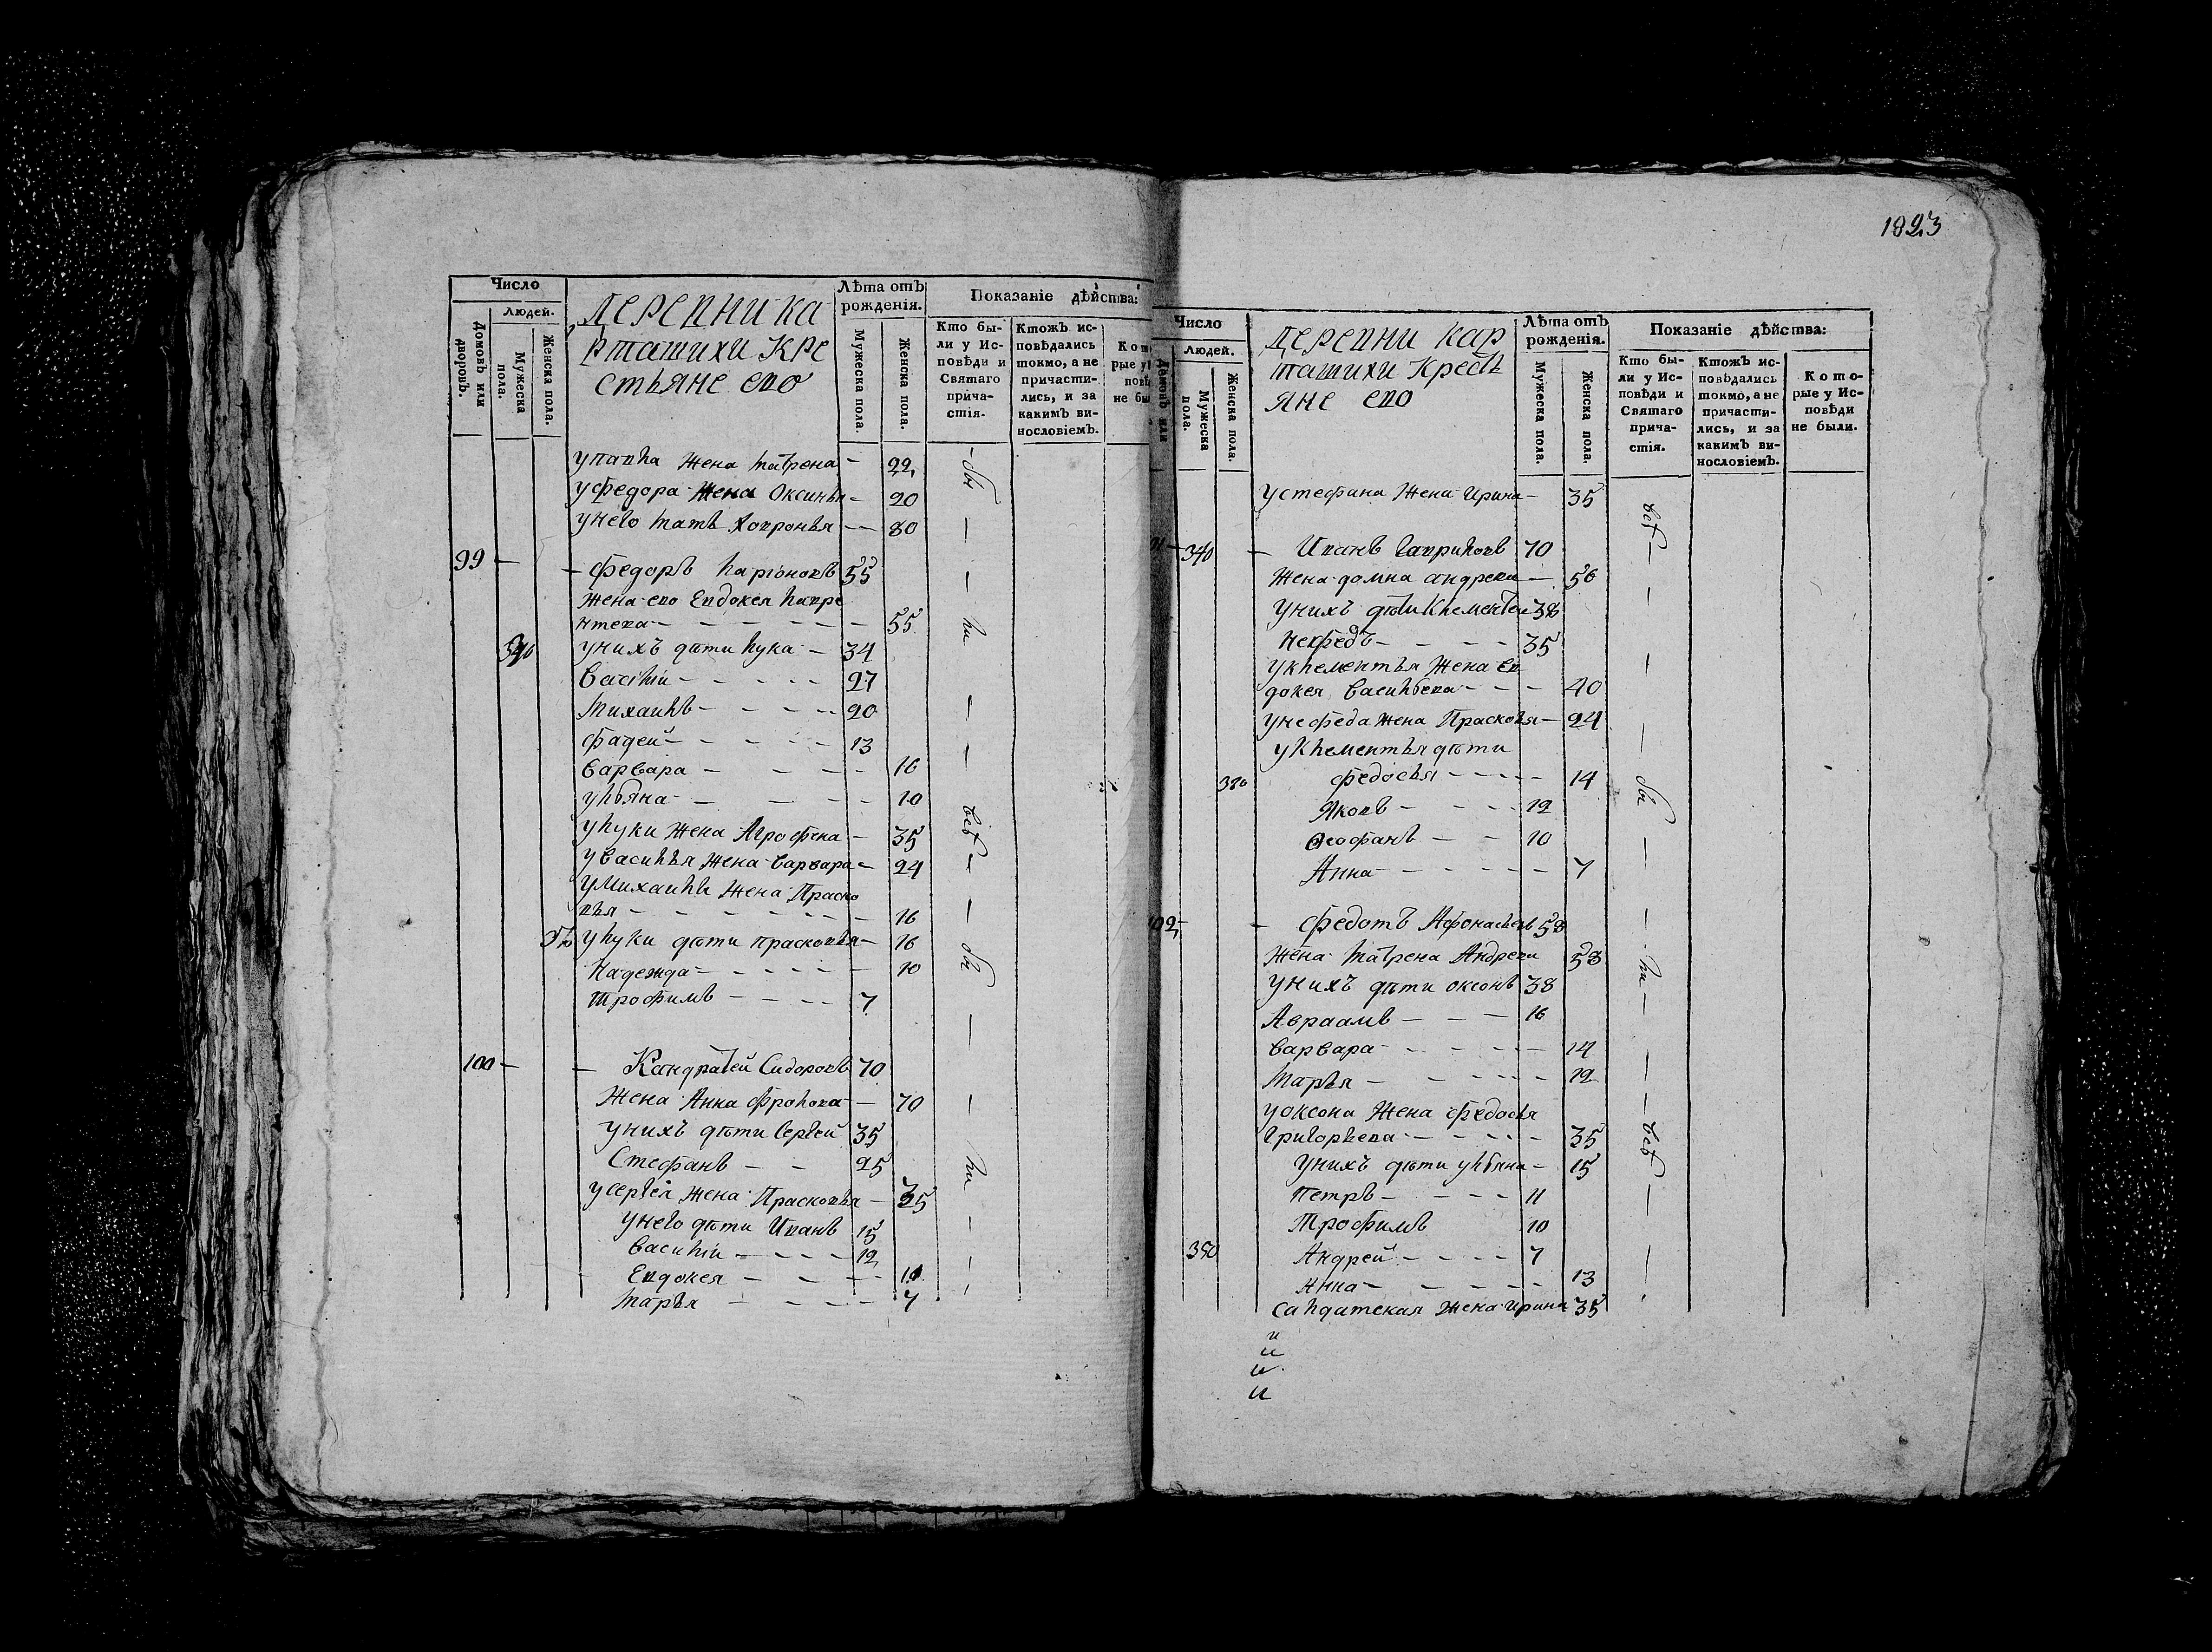 Число
Людей.
Домовъ или дворовъ.
Мужеска пола.
Женска пола.
деревни ка
рташихи кре
стьяне ево
Лѣта отъ рожденія.
Мужеска пола.
Женска пола.
Показаніе дѣйства:
Кто были у Исповѣди и Святаго причастія.
Ктожъ исповѣдались токмо, а не причастились, и за какимъ винословіемъ.
упавла жена матрена - 22
уфедора жена Оксинья - 20
унего мать Ховронья - - 80
99 - - федоръ ларіоновъ 55
жена ево Евдокея лавре
нтева - - - - - - 55
340 унихъ дѣти лука - 34
василіи - - - - - 27
михаилъ - - - - - 20
фадей - - - - - 13
варвара - - - - - 16
ульяна - - - - - 10
улуки жена Агрофена - 35
увасилья жена варвара - 24
умихаилы жена Праско
вья - - - - - - - 16
улуки дѣти прасковья - 16
надежда - - - - - 10
трофимъ - - - - 7
100 - - Кандратей Сидоровъ 70
жена Анна фролова - - 70
унихъ дѣти Сергей 35
Стефанъ - - 25
усергея жена Прасковья - 35
унего дѣти Иванъ 15
василіи - - - - 12
Евдокея - - - - 11
марья - - - - - 7
были всѣ были
1823
Число
Людей.
Мужеска пола.
Женска пола.
деревни кар
ташихи кресть
яне ево
Лѣта отъ рожденія.
Мужеска пола.
Женска пола.
Показаніе дѣйства:
Кто были у Исповѣди и Святаго причастія.
Ктожъ исповѣдались токмо, а не причастились, и за какимъ винословіемъ.
Которые у Исповѣди не были.
устефана жена ирина - 35
340 - Иванъ гавриловъ 70
жена домна андреева - 56
унихъ дѣти клементей 38
нефедъ - - - - 35
уклементья жена Ев
докея васильева - - - 40
унефеда жена Прасковья - 24
уклементья дѣти
федосья - - - - 14
Яковъ - - - - 12
Ѳеофанъ - - 10
Анна - - - - - - 7
102 - - федотъ Афонасьевъ 58
жена матрена Андреев 58
унихъ дѣти оксонъ 38
Авраамъ - - - 16
варвара - - - - - 14
марья - - - - - 12
уоксона жена федосья
григорьева - - - - - 35
унихъ дѣти ульяна - 15
петръ - - - - 11
трофимъ 10
350 Андрей - - - - 7
Анна - - - - - 13
салдатская жена ирина 35
всѣ были всѣ
и
и
и
и